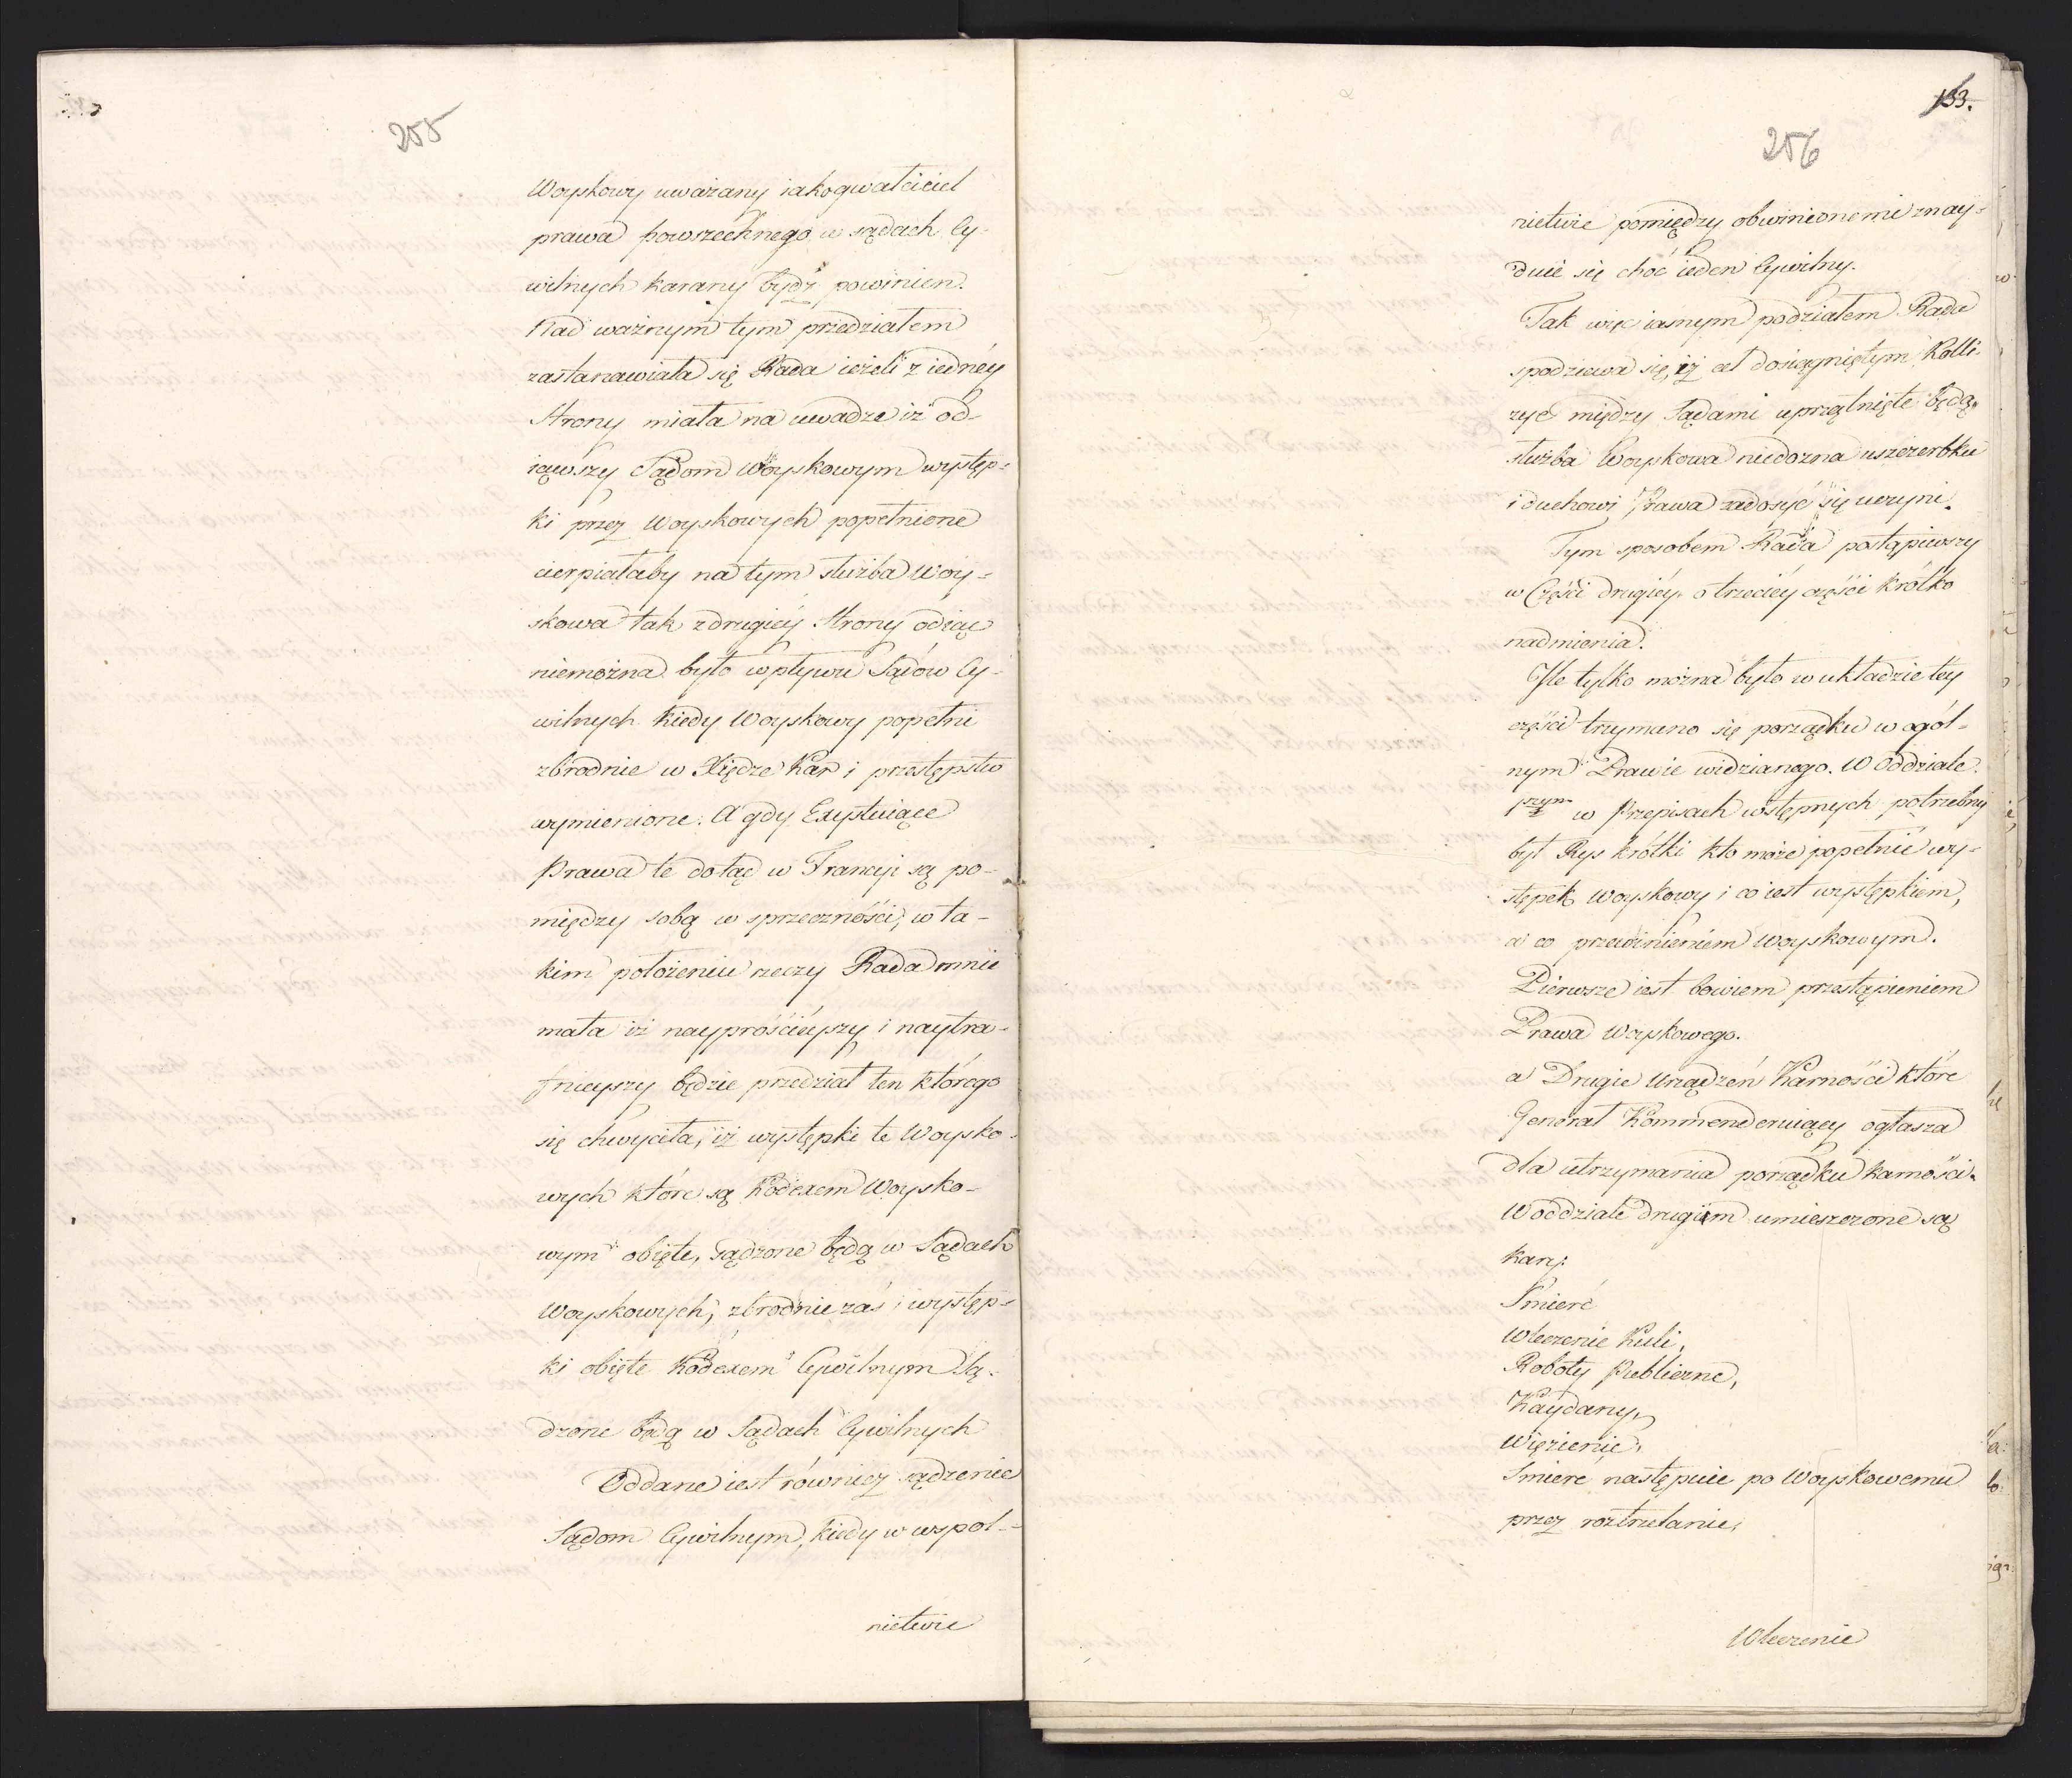 255
Woyskowy uważany iako gwałciciel
prawa powszechnego w sądach Cy-
wilnych karany bydź powinien.
Nad ważnym tym przedziałem
zastanawiała się Rada ieżeli z iednéy
Strony miała na uwadze iż od-
iąwszy Sądom Woyskowym występ-
ki przez Woyskowych popełnione
cierpiałaby na tym służba Woy-
skowa tak z drugiéy Strony odiąć
niemożna było wpływu Sądów Cy-
wilnych kiedy Woyskowy popełni
zbrodnie w Xiędze Kar i przestępstw
wymienione. A gdy Exystuiące
Prawa te dotąd w Francyi są po-
między sobą w sprzeczności, w ta-
kim położeniu rzeczy Rada mnie
mała iż nayprościéyszy i naytra-
fnieyszy będzie przedział ten którego
się chwyciła, iż występki te Woysko-
wych które są Kodexem Woysko-
wym obięte, sądzone będą w Sądach
Woyskowych, zbrodnie zaś i występ-
ki obięte Kodexem Cywilnym są-
dzone będą w Sądach Cywilnych
Oddane iest równiez sądzenie
Sądom Cywilnym, kiedy w wspol-
nictwie
133.
256
nictwie pomiędzy obwinionemi znay-
duie się choć ieden Cywilny.
Tak więc iasnym podziałem Rada
spodziewa się, iż cel dosiągniętym Kolli-
zye między Sądami uprzątnięte będą,
służba Woyskowa niedozna uszczerbku
i duchowi Prawa zadosyć się uczyni.
Tym sposobem Rada postąpiwszy
w Części drugiéy, o trzeciéy części krótko
nadmienia.
Ile tylko można było w układzie tey
części trzymano się porządku w ogól-
nym Prawie widzianego. W Oddziale
1szym w Przepisach wstępnych potrzebny
był Rys krótki kto może popełnić wy-
stępek Woyskowy i co iest występkiem,
a co przewinieniem Woyskowym.
Pierwsze iest bowiem przestąpieniem
Prawa Woyskowego.
a Drugie Urządzeń Karności które
Generał Kommenderuiący ogłasza
dla utrzymania porządku karności.
W oddziale drugim umieszczone są
kary:
Śmierć
Wleczenie Kuli,
Roboty Publiczne,
Kaydany,
Więzienie,
Smierć następuie po Woyskowemu
przez roztrzelanie,
Wleczenie